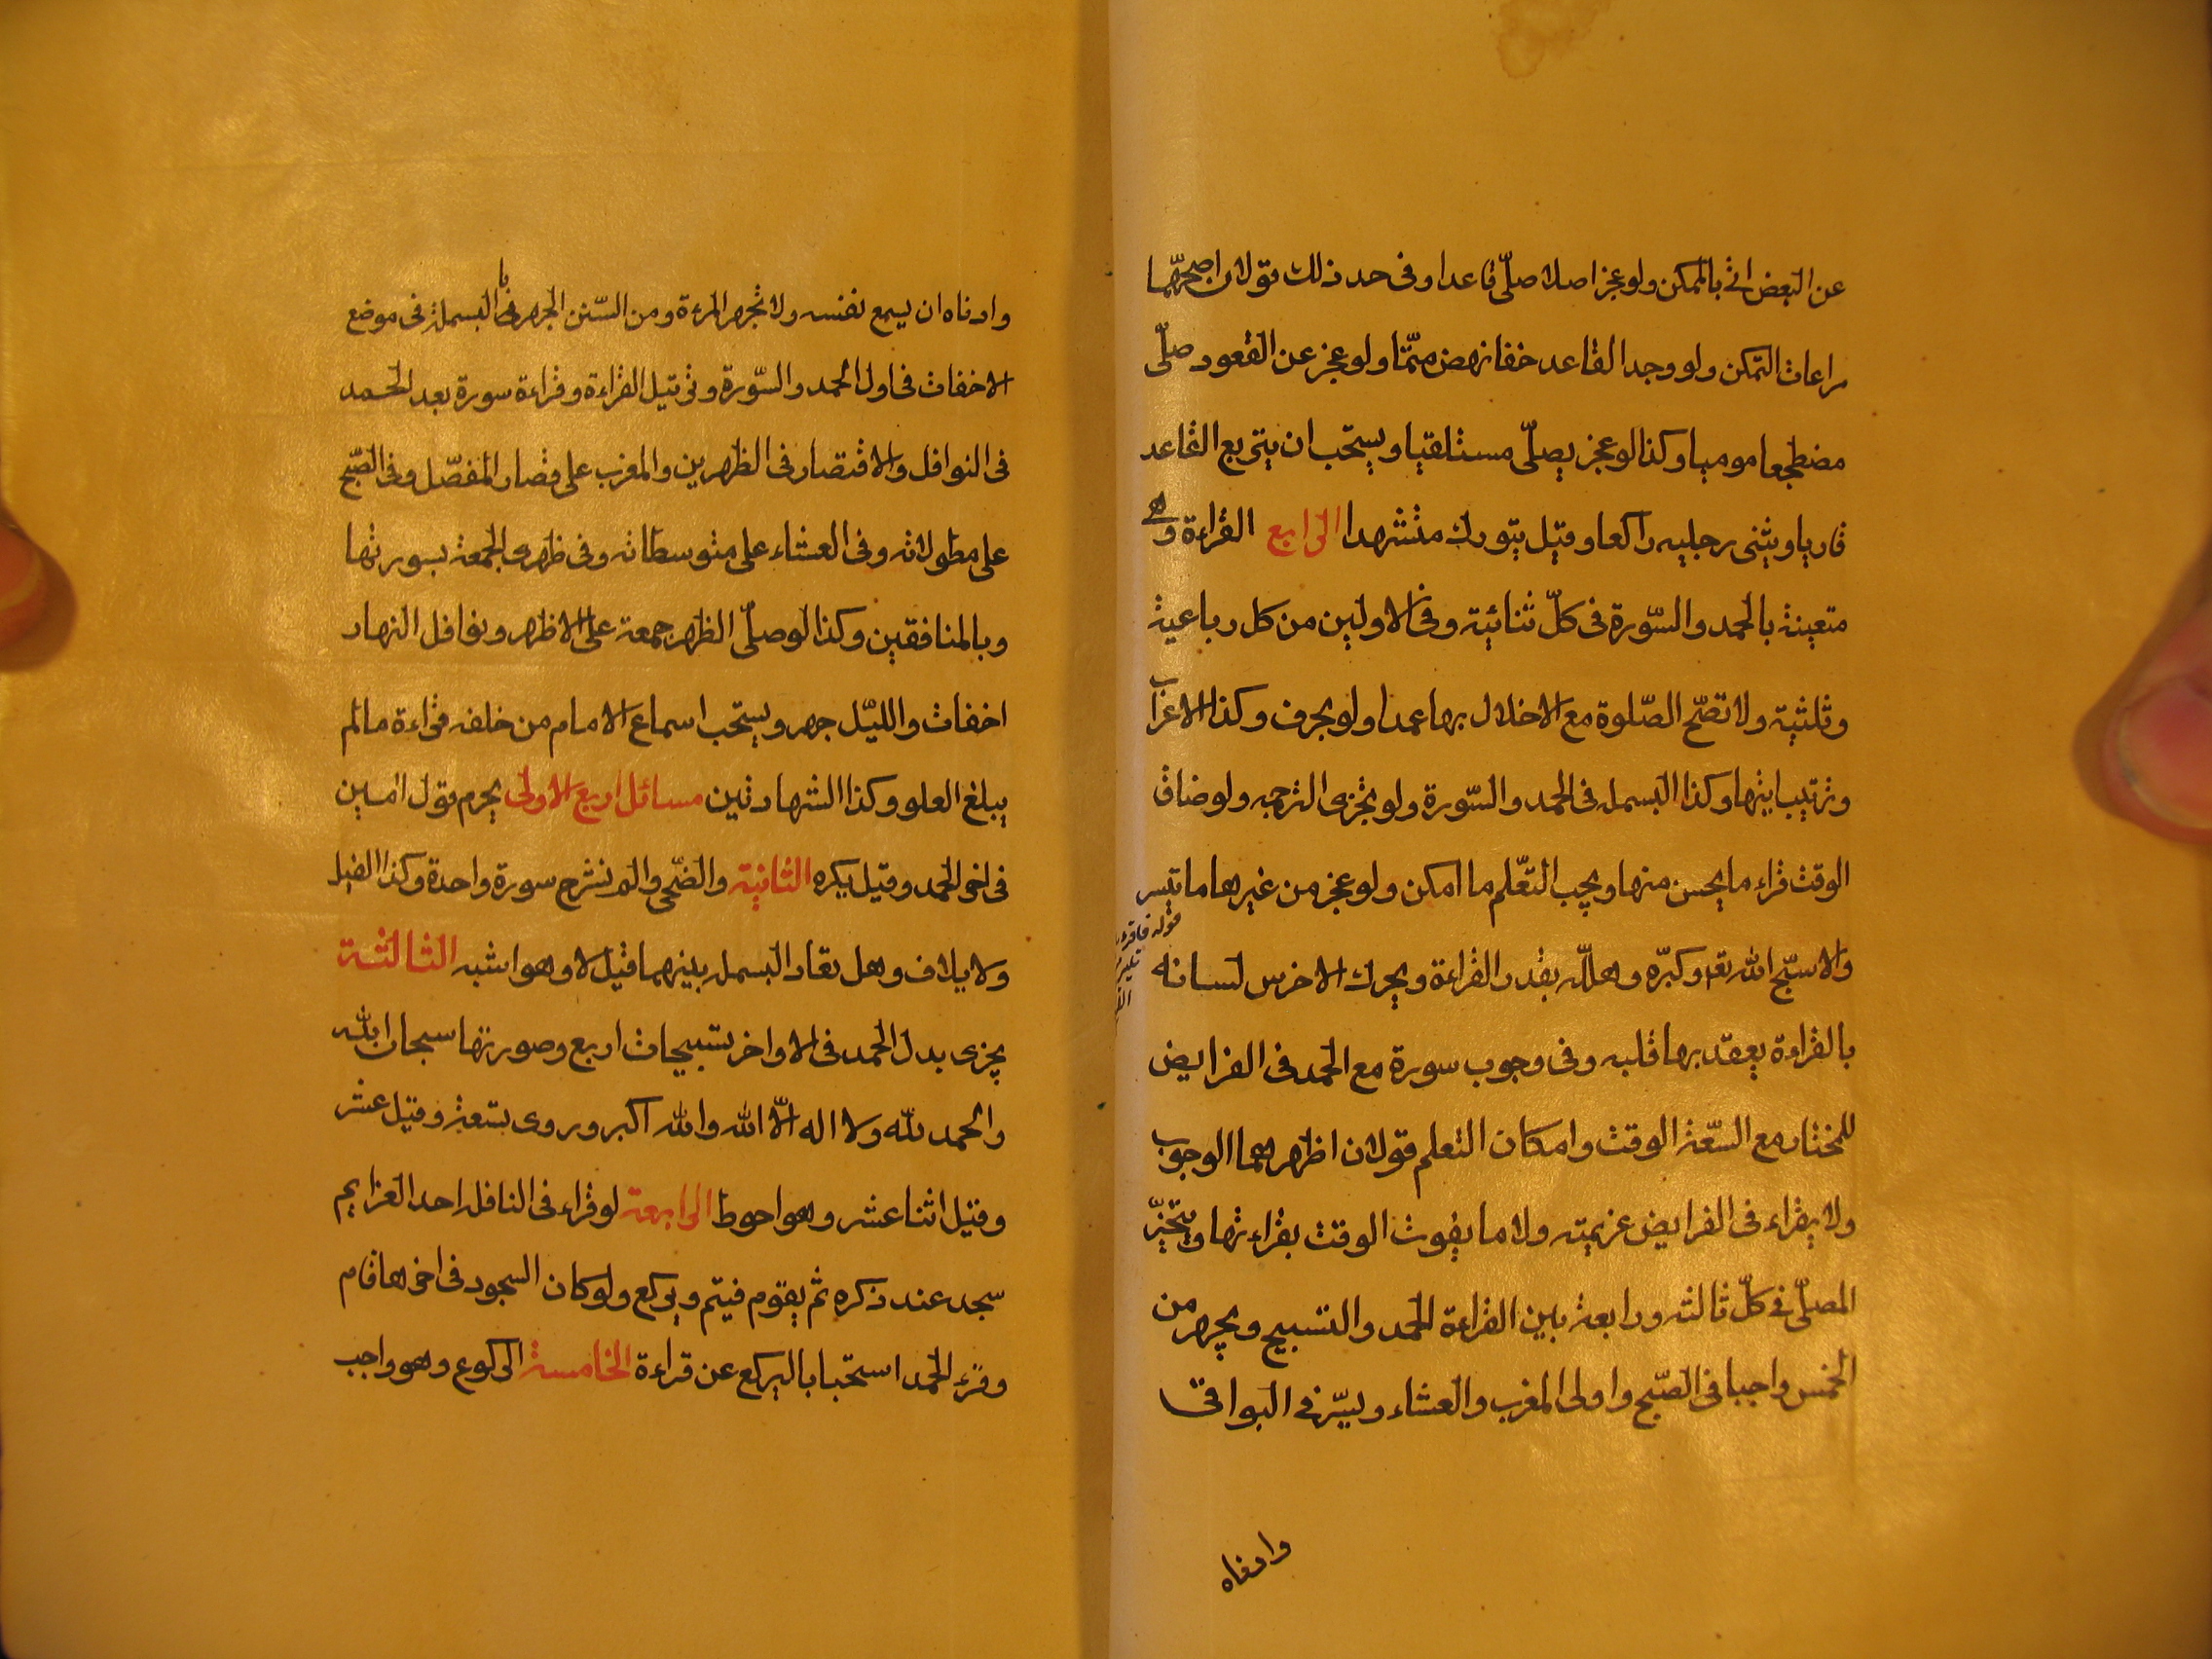 عن البعض اتى بالممكن ولو عجز اصلا صلّى قاعدا وفى حد ذلك قولان اصحهّما
مراعات التمّكن ولو وجد القاعد خفا نهض متمّما ولو عجز عن القعود صلّى
مضطجعا موميا وكذا لو عجز يصلّى مستلقيا ويستحب ان يتربع القاعد
قاريا ويثنى رجليه راكعا وقيل يتورك متشهدا الرابع القراءة وهى
متعينة بالحمد والسّورة فى كلّ ثنائية وفى الاوليين من كل رباعية
وثلثية ولا تصّح الصّلوة مع الاخلال بها عمدا ولو بحرف وكذا الاعراب
وترتيب ايتها وكذا البسمله فى الحمد والسّورة ولو تجزى الترجمه ولو ضاق
الوقت قراء ما يحسن منها ويجب التعّلم ما امكن ولو عجز من غيرها ما تيسر
والا سبّح الله تعا وكبرّه وهللّه بقدر القراءة ويحرك الاخرس لسانه
بالقراءة يعقد بها قلبه وفى وجوب سورة مع الحمد فى الفرايض
للمختار مع السّعة الوقت وامكان التعلم قولان اظهرهما الوجوب
ولا يقراء فى الفرايض عزيمته ولا ما يفوت الوقت بقراءتها ويتخيّر
المصلّى فى كلّ ثالثه ورابعة بين القراءة الحمد والتسبيح ويجهر من
الخمس واجبا فى الصّبح واولى المغرب والعشاء ويسرّ فى البواقى
قوله فاقرؤا
وادناه
وادناه ان يسمع نفسه ولا تجهر المرءة ومن السّنن الجهر با البسملة فى موضع
الاخفات فى اول الحمد والسّورة وترتيل القراءة وقراءة سورة بعد الحمد
فى النوافل والاقتصار فى الظهرين والمغرب على قصار المفصّل وفى الصّبح
على مطولاته وفى العشاء على متوسطاته وفى ظهرى الجمعة بسورتها
وبالمنافقين وكذا لو صلّى الظهر جمعة على الاظهر ونوافل النهار
اخفات والليّل جهر ويستحب اسماع الامام من خلفه قراءة مالم
يبلغ العلو وكذا الشهادتين مسائل اربع الاولى يحرم قول امين
فى اخر الحمد وقيل يكره الثانية والضّحى والم نشرح سورة واحدة وكذا الفيل
ولايلاف وهل تعاد البسمله بينهما قيل لا وهو اشبه الثالثة
يجزى بدل الحمد فى الاواخر تسبيحات اربع وصورتها سبحان الله
والحمد للّه ولا اله الّا الله والله اكبر وروى بتسعة وقيل عشر
وقيل اثنا عشر وهو احوط الرابعة لو قراء فى النافله احد العزايم
سجد عند ذكره ثم يقوم فيتم ويركع ولو كان السجود فى اخرها قام
وقرء الحمد استحبابا ليركع عن قراءة الخامسة الركوع وهو واجب